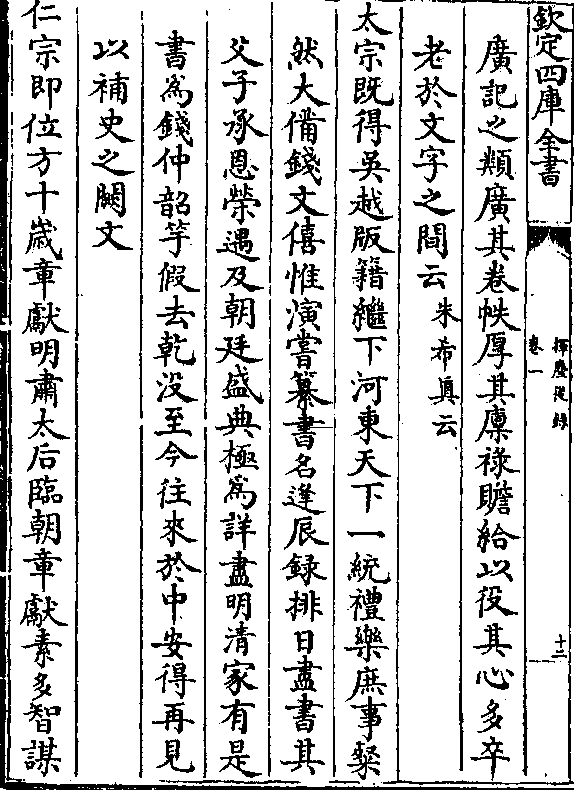 欽定四庫全書
揮麈後錄
卷一
十二
廣記之類廣其卷帙厚其廩祿贍給以役其心多卒
老於文字之間云朱希真云
太宗既得吳越版籍繼下河東天下一統禮樂庶事粲
然大備錢文僖惟演嘗纂書名逢辰録排日盡書其
父子承恩榮遇及朝廷盛典極為詳盡明清家有是
書為錢仲韶竽假去乾没至今往來於中安得再見
以補史之闕文
仁宗即位方十歲章獻明肅太后臨朝章獻素多智謀